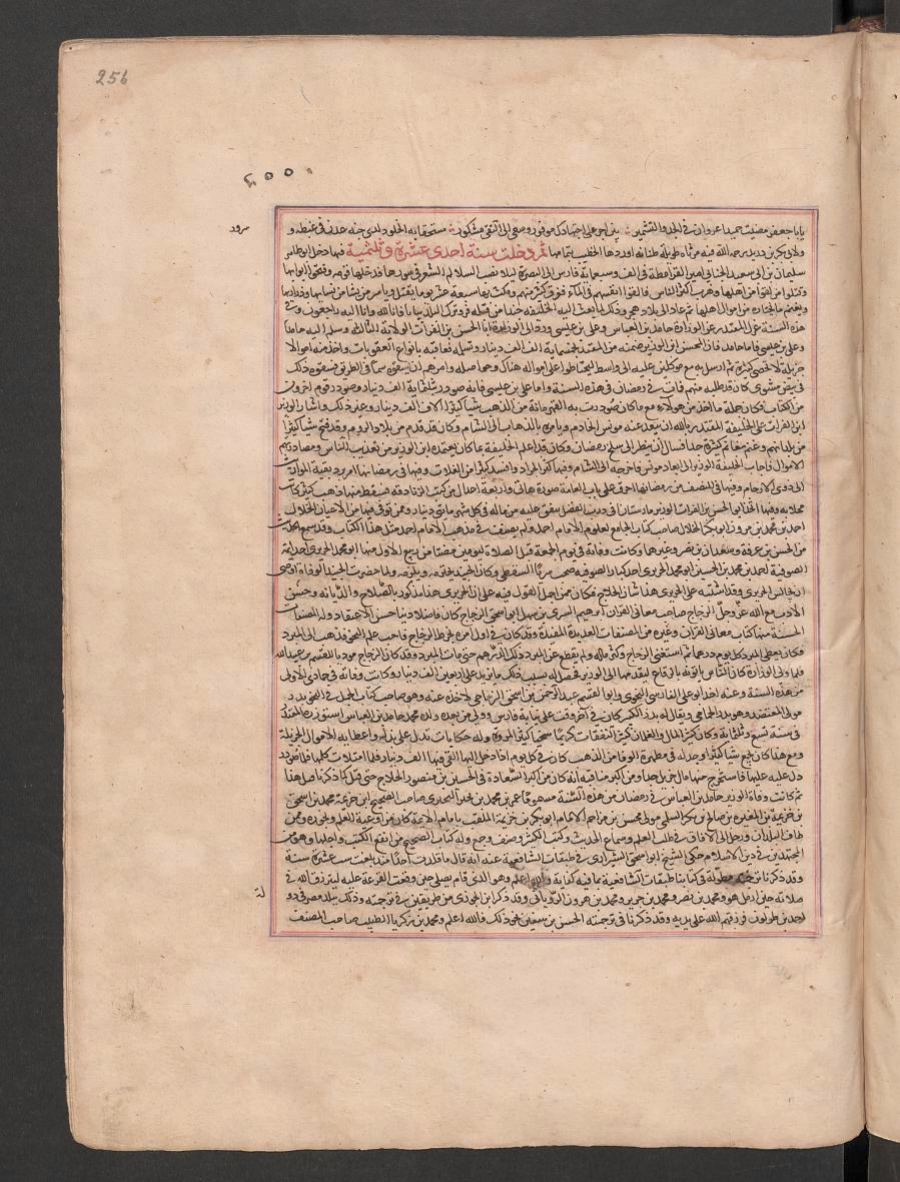 256
يابا جعفر مضيت حميدا غير وان في الجد والتشمير بين اجر على اجتهادك موفور وسعى الى التقى مشكور مستحقا به الخلود لدى جنة عدن في غبطة و
ولابي بكر بن دريد رحمه الله فيه مرثاة طويلة طنانة اوردها الخطيب بتمامها ثم دخلت سنة احدى عشرة وثلثمية فيها دخل ابو طاهر
سليمان بن ابي سعيد الجنابي امير القرامطة في الف وسبعماية فارس الى البصرة ليلا نصب السلالم الشعر في سورها فدخلها قوم وفتحوا ابوابها
وقتلوا من لقوا من اهلها وهرب اكثر الناس فالقوا انفسهم في الماء فغرق كثير منهم ومكث بها سبعة عشر يوما يقتل وياسر من يشا من نسايها وذراريها
وياخذ ما يختاره من اموال اهلها ثم عاد الى بلاده هجر وذلك لما بعث اليه الخليفة جندا من قبله فر وترك البلد يبابا فانا لله وانا اليه راجعون وفي
هذه السنة عزل المقتدر عن الوزارة حامد بن العباس وعلي بن عيسى ورد الى الوزارة ابا الحسن بن الفرات الولاية الثالثة وسلم اليه حامدا
وعلي بن عيسى فاما حامد فان المحسن ابن الوزير ضمنه من المقتدر بخمسماية الف الف دينار وتسلمه فعاقبه بانواع العقوبات واخذ منه اموالا
جزيلة لا تحصى كثيرة ثم ارسل به مع موكلين عليه الى واسط ليحتاطوا على امواله هناك وحواصله وامرهم ان يسقوه سما في الطريق فسقوه ذلك
في بيض مشوي كان قد طلبه منهم فمات في رمضان في هذه السنة واما علي بن عيسى فانه صودر بثلثماية الف دينار وصودر قوم اخرون
من الكتاب فكان جملة ما اخذ من هولاء مع ما كان صودرت به القهرمانة من الذهب شيا كثيرا الاف الف دينار وغير ذلك واشار الوزير
ابن الفرات على الخليفة المقتدر بالله ان يبعد عنه مونس الخادم ويامره بالذهاب الى الشام وكان قد قدم من بلاد الروم وقد فتح شيا كثيرا
من بلدانهم وغنم مغانم كثيرة جدا فسال ان ينظر الى سلخ رمضان وكان قد اعلم الخليفة بما كان يعتمده ابن الوزير من تعذيب الناس ومصادرتهم
الاموال فاجاب الخليفة الوزير الى ابعاد مونس فاخرجه الى الشام وفيها كثر الجراد وافسد كثيرا من الغلات وفيها في رمضانها امر برد بقية المواريث
الى ذوي الارحام وفيها في النصف من رمضانها احرق على باب العامة صورة ماني واربعة احدال من كتب الزنادقة فسقط منها ذهب كثير كانت
محلاة به وفيها اتخذ ابو الحسن بن الفرات الوزير مارستان في درب الفضل ينفق عليه من ماله في كل شهر مايتي دينار وممن توفي فيها من الاعيان الخلال
احمد بن محمد بن هرون ابو بكر الخلال صاحب كتاب الجامع لعلوم الامام احمد ولم يصنف في مذهب الامام احمد مثل هذا الكتاب وقد سمع الحديث
من الحسن بن عرفة وسعدان بن نصر وغيرهما وكانت وفاته في يوم الجمعة قبل الصلاة ليومين مضيا من ربيع الاول منها ابو محمد الجريري احد ايمة
الصوفية احمد بن محمد بن الحسين ابو محمد الجريري احد كبار الصوفية صحب سريا السقطي وكان الجنيد يحترمه ويكرمه ولما حضرت الجنيد الوفاة اوصى
ان يجالس الجريري وقد اشتبه على الجريري هذا شان الحلاج فكان ممن اجمل القول فيه على ان الجريري هذا مذكور بالصلاح والديانة وحسن
الادب مع الله عز وجل الزجاج صاحب معاني القران ابراهيم بن السري بن سهل ابو اسحق الزجاج كان فاضلا دينا حسن الاعتقاد وله المصنفات
الحسنة منها كتاب معاني القران وغيره من المصنفات العديدة المفيدة وقد كان في اول امره يخرط الزجاج فاحب علم النحو فذهب الى المبرد
فكان يعطي المبرد كل يوم درهما ثم استغنى الزجاج وكثر ماله ولم يقطع عن المبرد ذلك الدرهم حتى مات المبرد وقد كان الزجاج مودبا للقسم بن عبيد الله
فلما ولي الوزارة كان الناس ياتونه بالرقاع ليقدمها الى الوزير فحصل له بسبب ذلك ما يزيد على اربعين الف دينار وكانت وفاته في جمادى الاولى
من هذه السنة وعنه اخذ ابو علي الفارسي النحوي وابو القسم عبد الرحمن بن اسحق الزجاجي لاخذه عنه وهو صاحب كتاب الجمل في النحو بدر
مولى المعتضد وهو بدر الحمامي ويقال له بدر الكبير كان في اخر وقت على نيابة فارس وولي من بعده ولده محمد حامد بن العباس استوزره المقتدر
في سنة تسع وثلثماية وكان كثير المال والغلمان كثير النفقات كريما سخيا كثير المروة وله حكايات تدل على بذله واعطايه الاموال الجزيلة
ومع هذا كان جمع شيا كثيرا وجد له في مطمورة الوفا من الذهب كان في كل يوم اذا دخل اليها القى فيها الف دينار فلما امتلات طمها فلما صودر
دل عليه عليها فاستخرج منها مال جزيل جدا ومن اكبر مناقبه انه كان من اكبر السعاة في الحسين بن منصور الحلاج حتى قتل كما ذكرنا
ثم كانت وفاة الوزير حامد بن العباس في رمضان من هذه السنة مسموما عمر بن محمد بن بجير البجيري صاحب الصحيح ابن خزيمة محمد بن اسحق
بن خزيمة بن المغيرة بن صالح بن بكر السلمي مولى محسن بن مزاحم الامام ابو بكر بن خزيمة الملقب بامام الايمة كان من اوعية العلم وبحوره وممن
طاف البلدان ورحل الى الافاق في طلب العلم وسماع الحديث وكتب الكثير وصنف وجمع وله كتاب الصحيح من انفع الكتب واجلها وهو من
المجتهدين في دين الاسلام حكى الشيخ ابو اسحق الشيرازي في طبقات الشافعية عنه انه قال ما قلدت احدا منذ بلغت ست عشرة سنة
وقد ذكرنا ترجمته مطولة في كتابنا طبقات الشافعية بما فيه كفاية والله اعلم وهو الذي قام يصلي حين وقعت القرعة عليه ليسترزق الله في
صلاته حين ارمل هو ومحمد بن نصر ومحمد بن جرير ومحمد بن هرون الروياني وقد ذكرها ابن الجوزي من طريقين في ترجمته وذلك ببلد مصر في دولة
احمد بن طولون فرزقهم الله على يديه وقد ذكرنا في ترجمته الحسن بن سفين نحو ذلك فالله اعلم ومحمد بن زكريا الطبيب صاحب المصنف